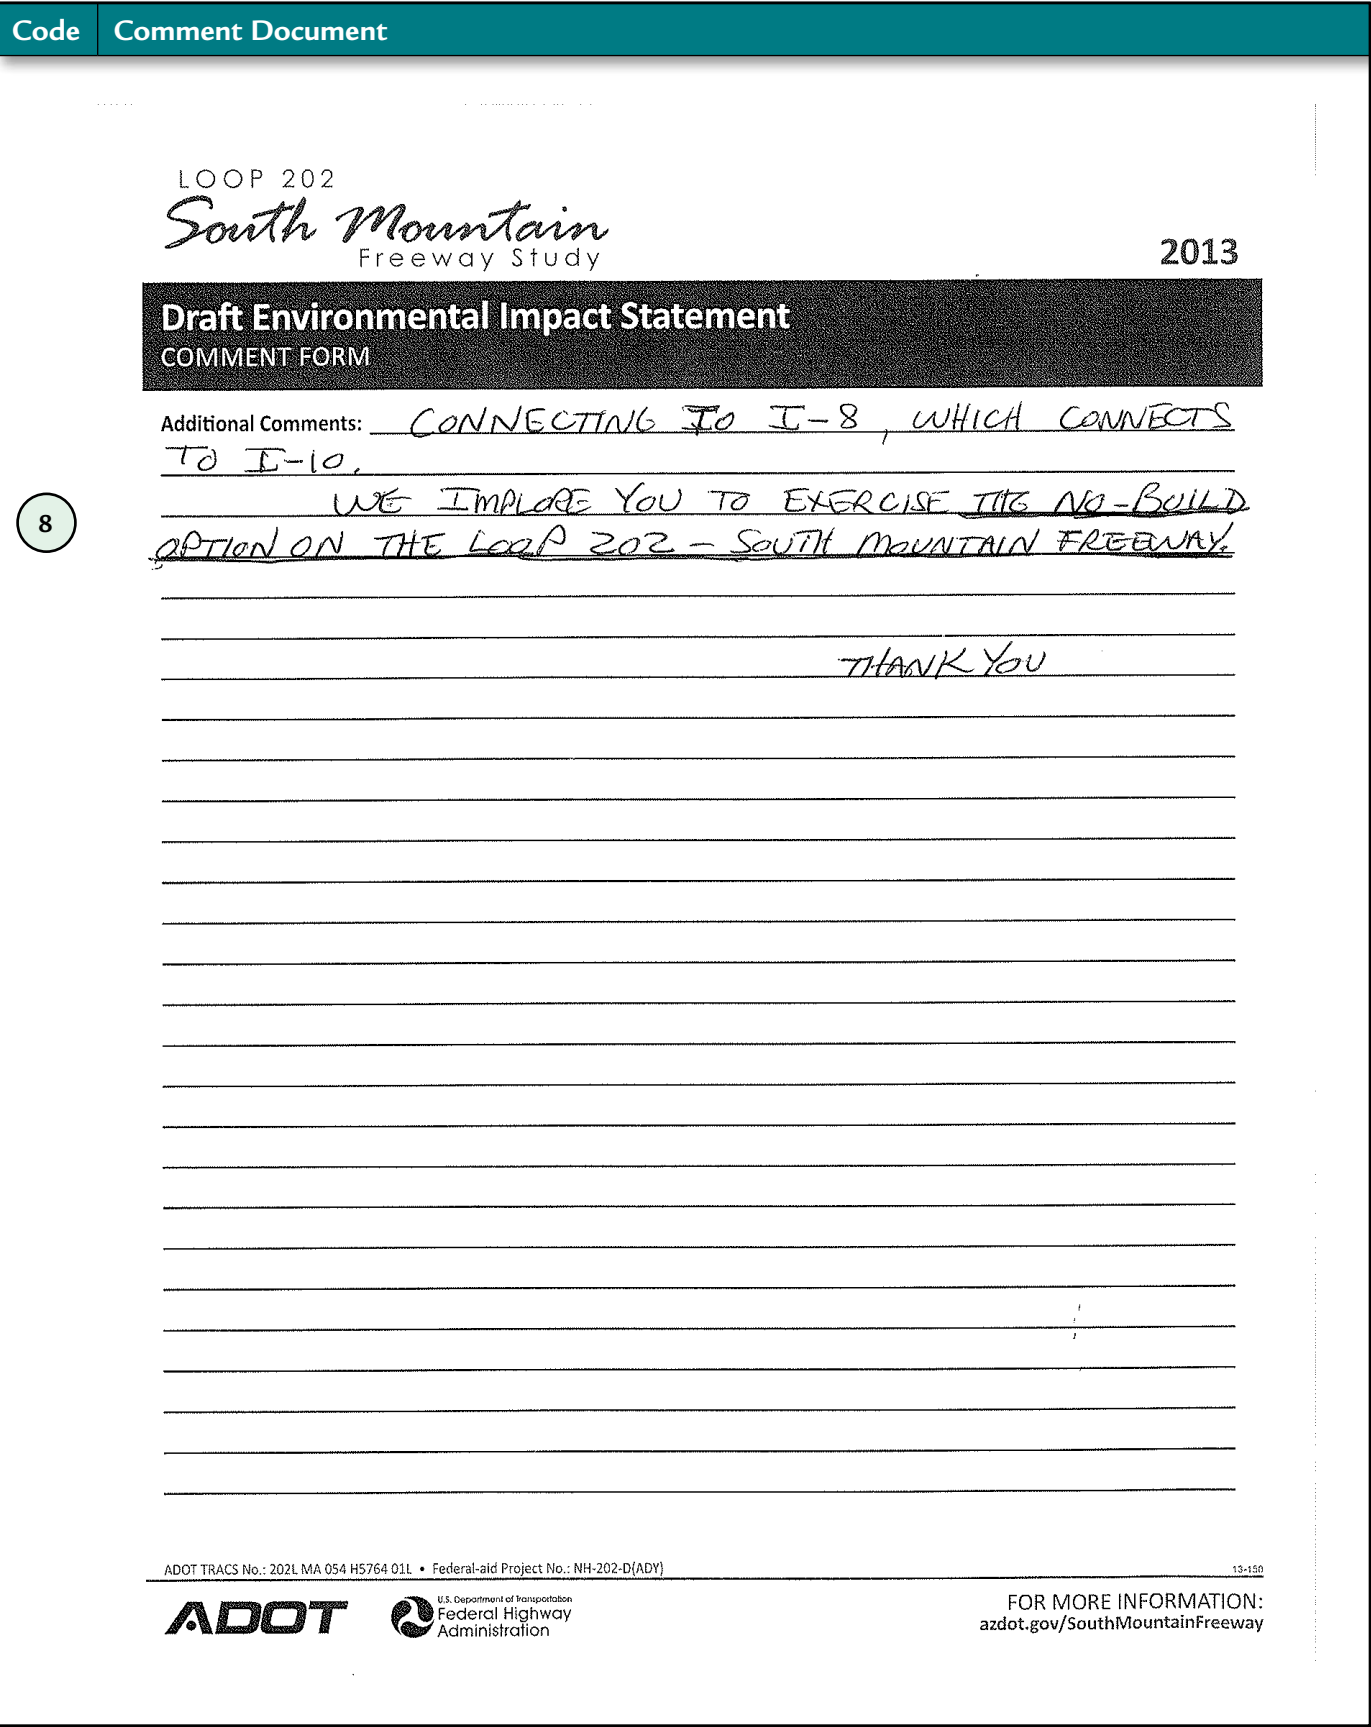 Code Comment Document
LOOP 202
South Mountain
Freeway Study
2013
Draft Environmental Impact Statement
COMMENT FORM
Additional Comments: CONNECTING TO I-8, WHICH CONNECTS
TO I-10.
WE IMPLORE YOU TO EXERCISE THE NO-BUILD
8
OPTION ON THE LOOP 202 - SOUTH MOUNTAIN FREEWAY.
THANK YOU
ADOT TRACS No.: 202L MA 054 H5764 01L • Federal-aid Project No.: NH-202-D(ADY)
13-150
ADOT
U.S. Department of Transportation
Federal Highway
Administration
FOR MORE INFORMATION:
azdot.gov/SouthMountainFreeway